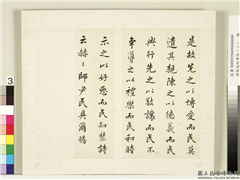 是故先之以博愛而民莫
遺其親陳之以德義而民
興行先之以敬讓而民不
爭導之以禮樂而民和睦
示之以好惡而民知禁詩
云赫〻師尹民具爾瞻